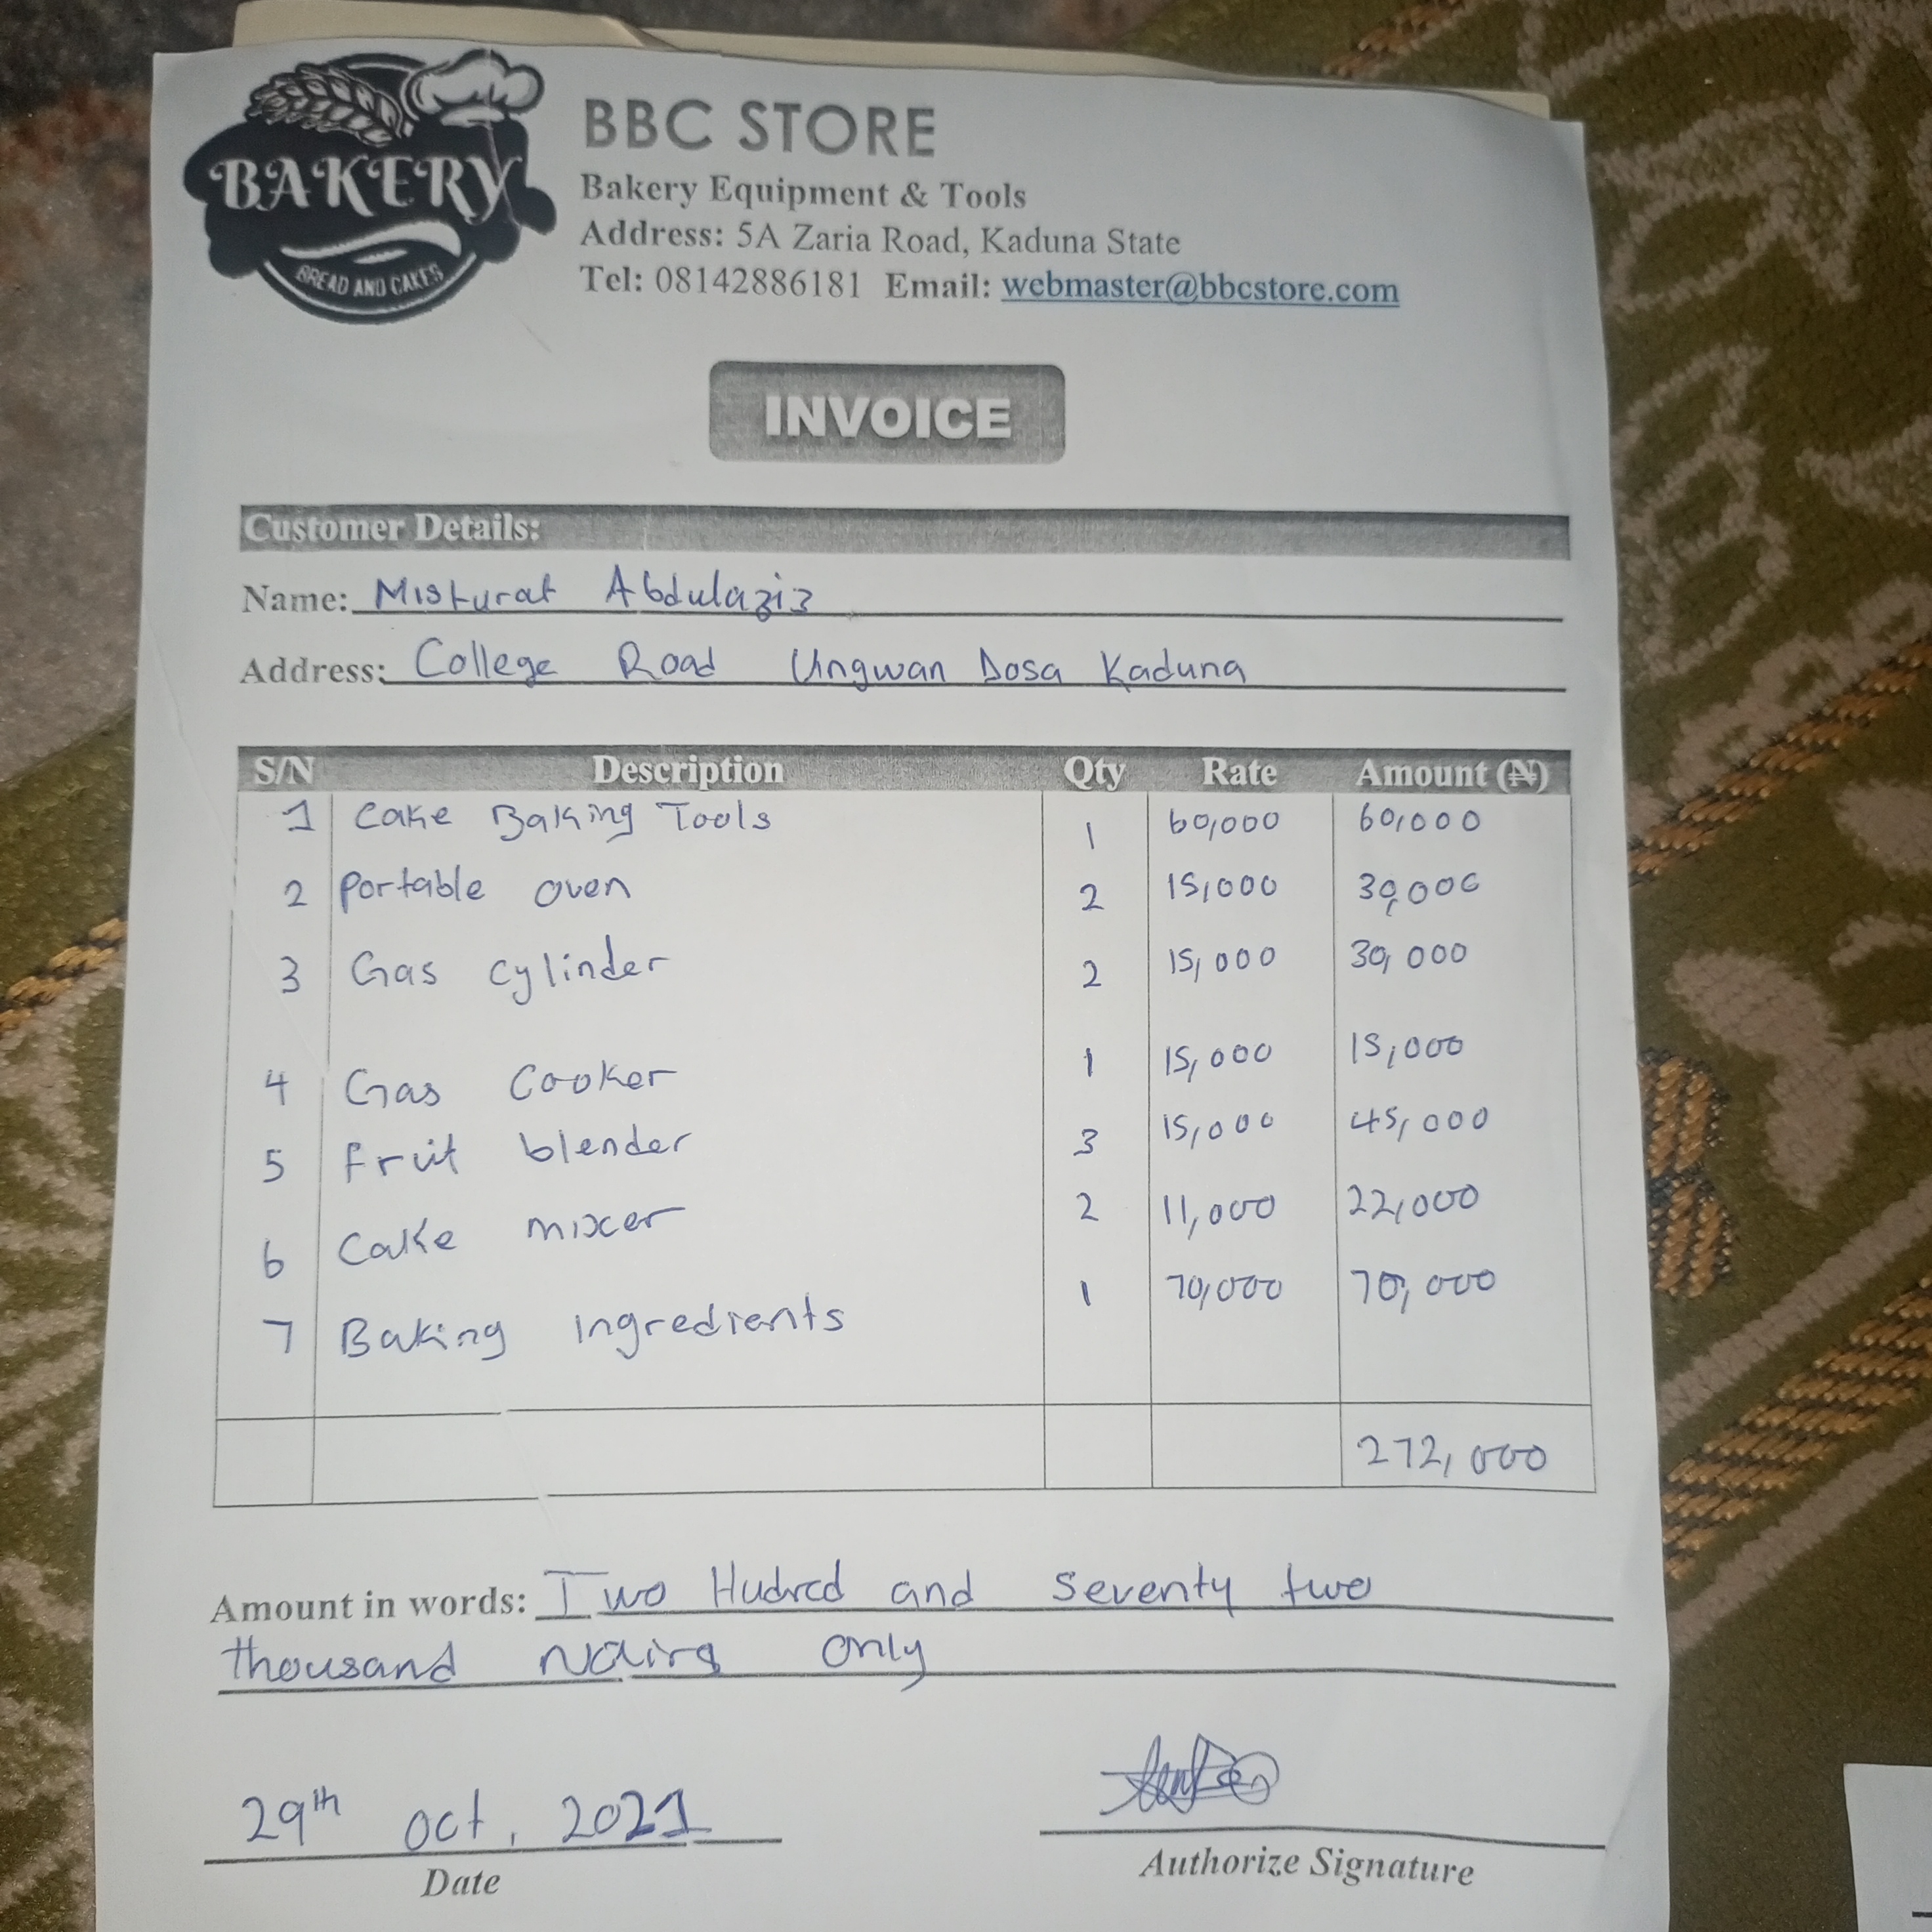 BAKERY
BREAD AND CAKES
BBC STORE
Bakery Equipment & Tools
Address: 5A Zaria Road, Kaduna State
Tel: 08142886181 Email: webmaster@bbcstore.com
INVOICE
Customer Details:
Name: Misturat Abdulaziz
Address: College Road Ungwan Dosa Kaduna
S/N Description Qty Rate Amount (₦)
1 Cake Baking Tools 1 60,000 60,000
2 Portable oven 2 15,000 30,000
3 Gas cylinder 2 15,000 30,000
4 Gas Cooker 1 15,000 15,000
5 fruit blender 3 15,000 45,000
6 Cake mixer 2 11,000 22,000
7 Baking ingredients 1 70,000 70,000
272,000
Amount in words: Two Hudred and seventy two
thousand Naira only
29th Oct, 2021
Date
Authorize Signature